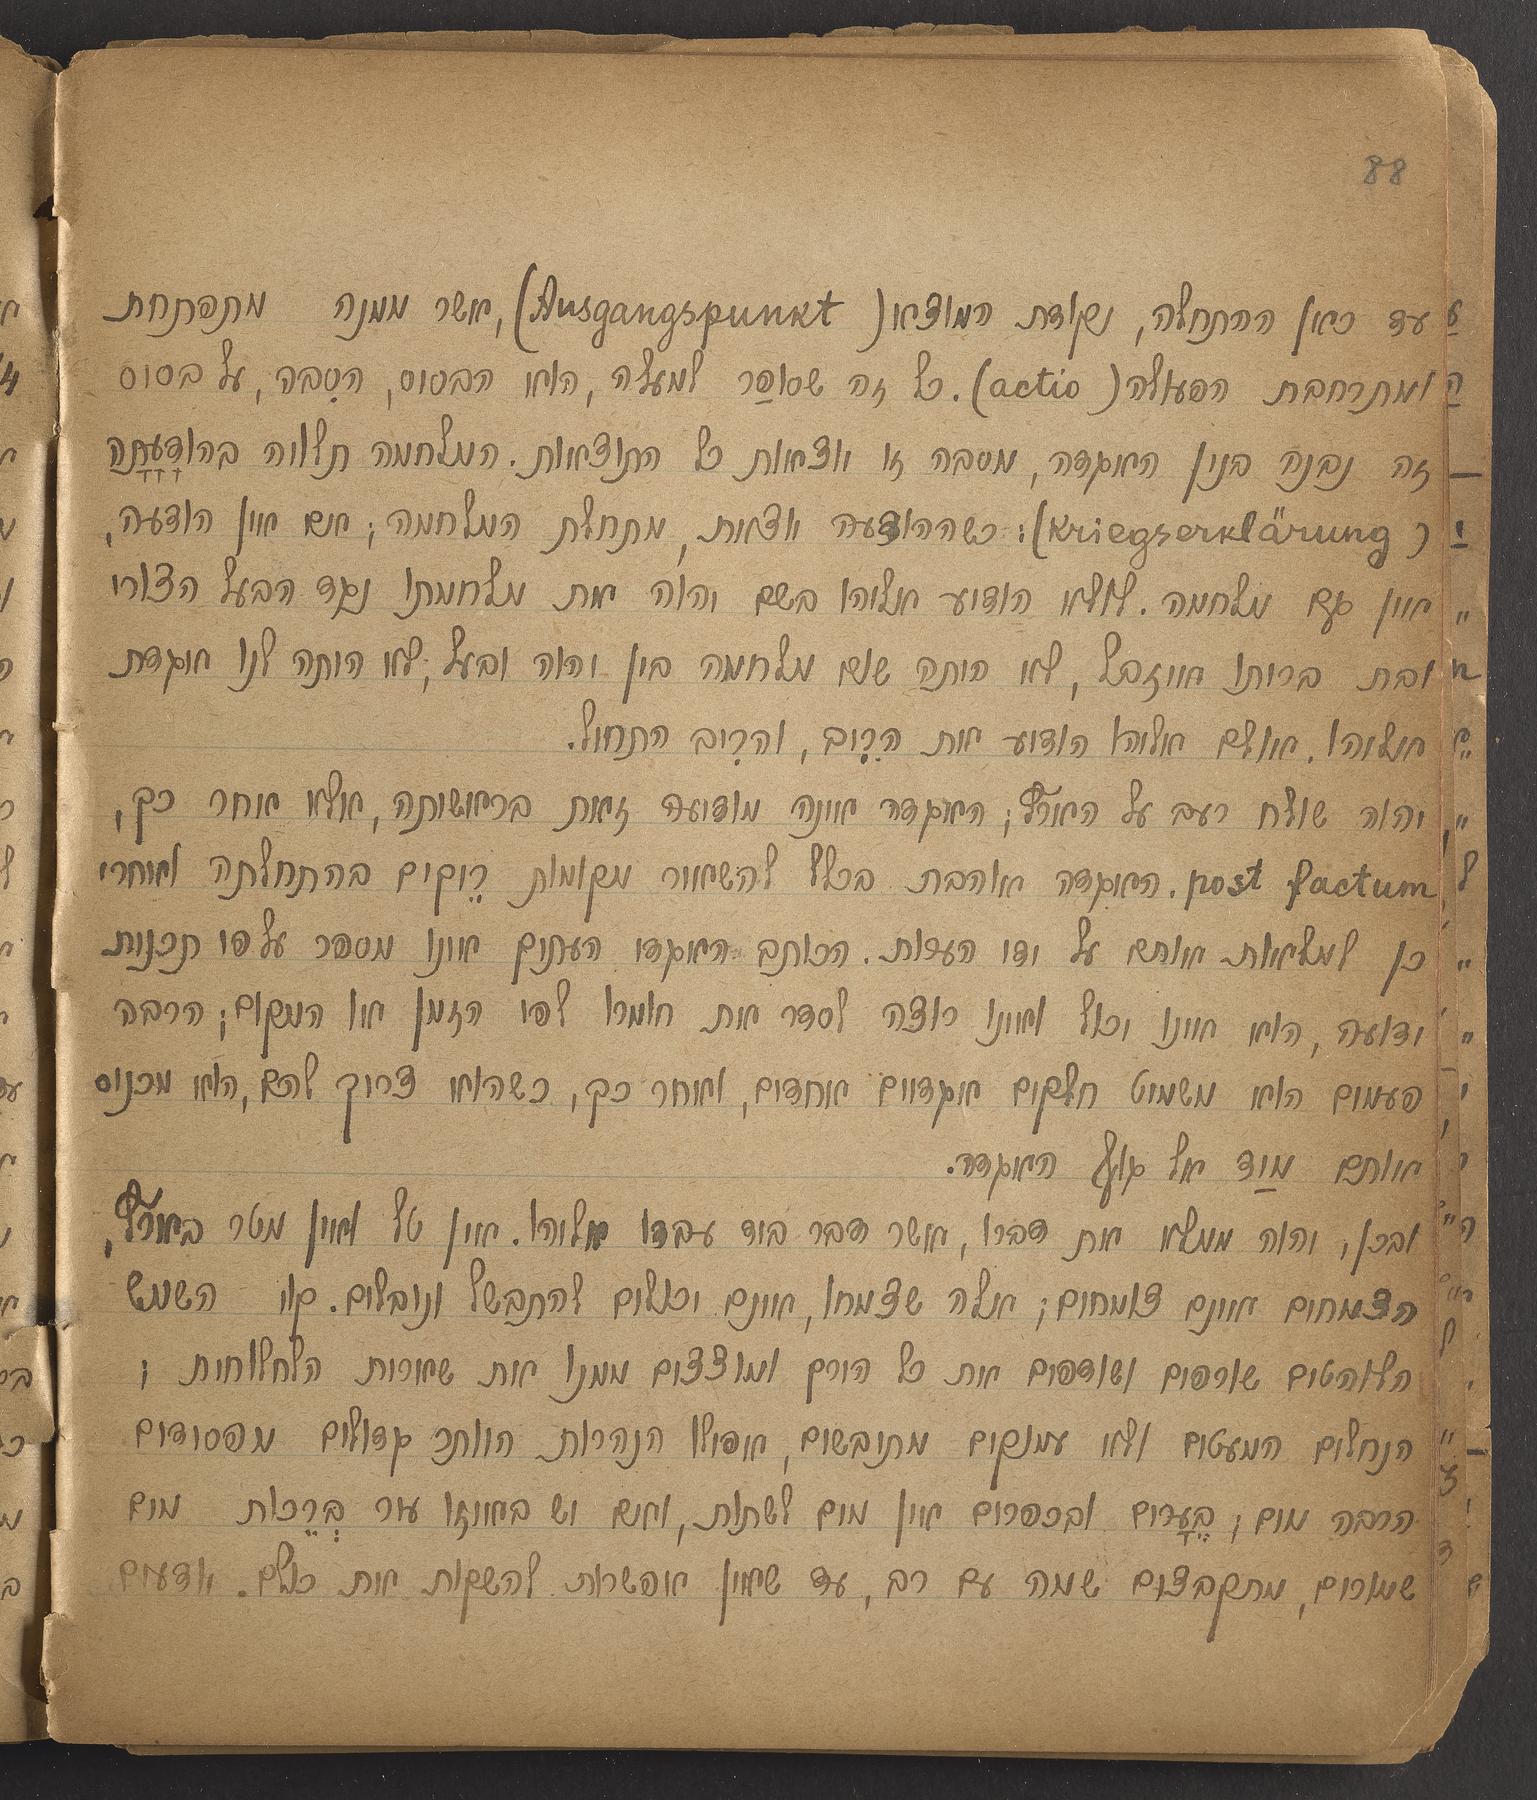 88
עד כאן ההתחלה, נקודת המוצא (Ausgangspunkt), אשר ממנה מתפתחת
ומתרחבת הפעולה (actio). כל זה שסופַר למעלה, הוא הבסיס, הסִבה, על בסיס
זה נבנה בנין האגדה, מסבה זו יוצאות כל התוצאות. המלחמה תלויה בהודָעָתָה
(Kriegserklärung): כשההודעה יוצאת, מתחלת המלחמה; אם אין הודעה,
אין גם מלחמה. לולא הודיע אליהו בשם יהוה את מלחמתו נגד הבעל הצורי
ובת בריתו איזבל, לא היתה שום מלחמה בין יהוה ובעל; לא היתה לנו אגדת
אליהו. אולם אליהו הודיע את הרִיב, והרִיב התחיל.
יהוה שולח רעב על הארץ; האגדה אינה מודיעה זאת בראשיתה, אלא אחר כך,
post factum. האגדה אוהבת בכלל להשאיר מקומות רֵיקים בהתחלתה ואחרי
כן למלאות אותם על ידי העדות. הכותב האגדי העתיק אינו מספר על פי תכנית
ידועה, הוא אינו יכול ואינו רוצה לסדר את חומרו לפי הזמן או המקום; הרבה
פעמים הוא משמיט חלקים אגדיים אחדים, ואחר כך, כשהוא צריך להם, הוא מכניס
אותם מִיַד אל גוף האגדה.
ובכן, יהוה ממלא את דברו, אשר דבר ביד עבדו אליהו. אין טל ואין מטר בארץ,
הצמחים אינם צומחים; אלה שצמחו, אינם יכולים להתבשל ונובלים. קוי השמש
הלוהטים שורפים ושודפים את כל הירק ומוצצים ממנו את שארית הלחלוחית;
הנחלים המעטים ולא עמוקים מתיבשים, אפילו הנהרות היותר גדולים מפסידים
הרבה מים; בֶעָרים ובכפרים אין מים לשתות, ואם יש באיזו עיר בְּרֵכות מים
שמורים, מתקבצים שמה עם רב, עד שאין אפשרות להשקות את כולם. יודעים